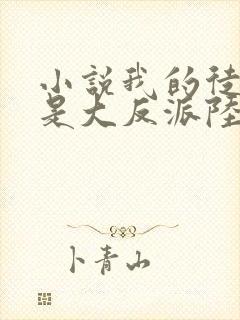 小說我的徒
是大反派陸
卜青山